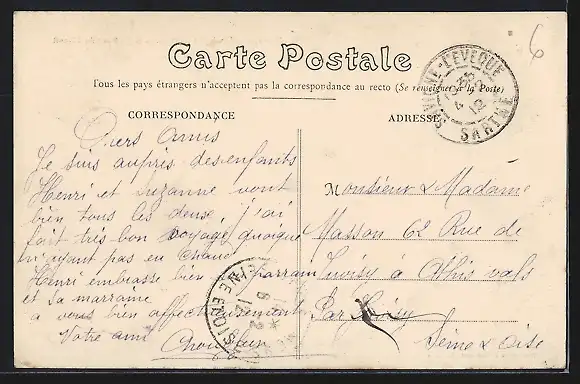 6
Carte Postale
Tous les pays étrangers n'acceptent pas la correspondance au recto (Se renseigner à la Poste)
CORRESPONDANCE
ADRESSE
L'EVEQUE
SARTHE
12
Chers Amis
Je suis auprès des enfants
Henri et Suzanne vont
bien tous les deux, j'ai
fait très bon voyage quoique
n'ayant pas eu chaud
Henri embrasse bien parrain
et sa marraine
a vous bien affectueusement
Votre ami
Monsieur & Madame
Masson 62 Rue de
Juvisy à Athis vals
Par Juvisy
Seine & Oise